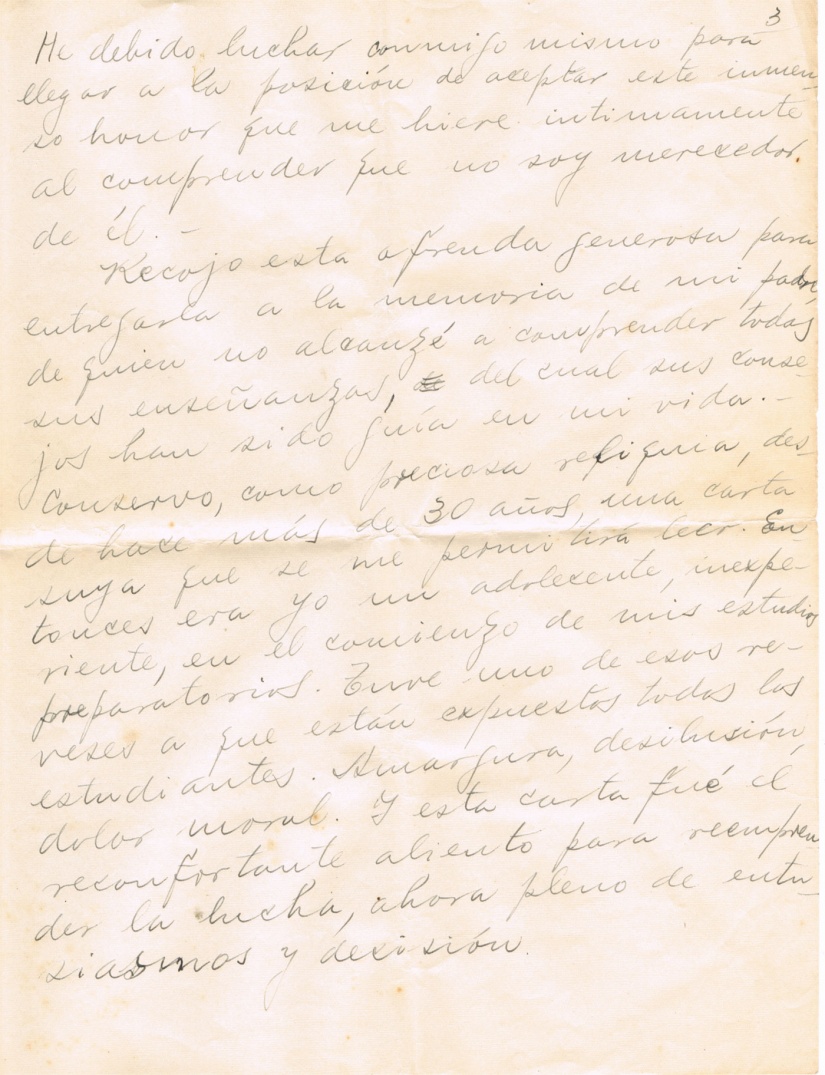 3
He debido luchar conmigo mismo para
llegar a la posición de aceptar este inmen-
so honor que me hiere intimamente
al comprender que no soy merecedor
de él. -
Recojo esta ofrenda generosa para
entregarla a la memoria de mi padre,
de quien no alcanzé a comprender todas
sus enseñanzas, del cual sus conse-
jos han sido guía en mi vida. -
Conservo, como preciosa reliquia, des-
de hace más de 30 años, una carta
suya que se me permitirá leer. En
tonces era yo un adolecente, inexpe-
riente, en el comienzo de mis estudios
preparatorios. Tuve uno de esos re-
veses a que están expuestos todos los
estudiantes. Amargura, desilusión,
dolor moral. Y esta carta fué el
reconfortante aliento para reempren-
der la lucha, ahora pleno de entu-
siasmos y decisión.